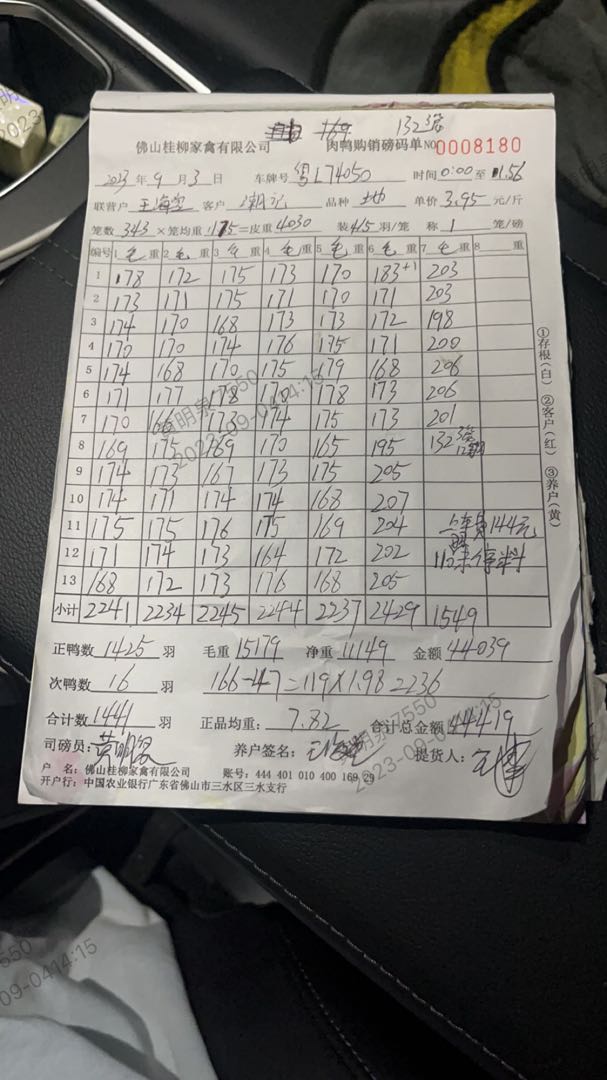 132强
佛山桂柳家禽有限公司 肉鸭购销磅码单 NO 0008180
2023年9月3日 车牌号 粤L74050 时间0:00至1:56
联营户 客户 潮记 品种 单价3.95元/斤
笼数343×笼均重1175=皮重4030 装4.15羽/笼 称1笼/磅
编号 1毛重 2毛重 3毛重 4毛重 5毛重 6毛重 7毛重 8 重
1 178 172 175 173 170 183+1 203
2 173 171 175 171 170 171 203
3 174 170 168 173 173 172 198
4 170 170 174 176 175 171 200
5 174 168 170 175 179 168 206
6 171 177 178 170 178 173 206
7 170 166 173 174 175 173 201
8 169 175 169 170 165 195 132
9 174 173 167 173 175 205
10 174 171 174 174 168 207
11 175 175 176 175 169 204 144元
12 171 174 173 164 172 202 停料
13 168 172 173 176 168 205
小计 2241 2234 2245 2244 2237 2429 1549
正鸭数1425羽 毛重15179 净重11149 金额44039
次鸭数16羽 166-47=119×1.98 2236
合计数1441羽 正品均重:7.82 合计总金额:44419
司磅员:黄明泉 养户签名: 提货人:
户 名:佛山桂柳家禽有限公司 账号:444 401 010 400 169 29
开户行:中国农业银行广东省佛山市三水区三水支行
①存根(白) ②客户(红) ③养户(黄)
黄明泉7550
2023-09-0414:15
黄明泉7550
2023-09-0414:15